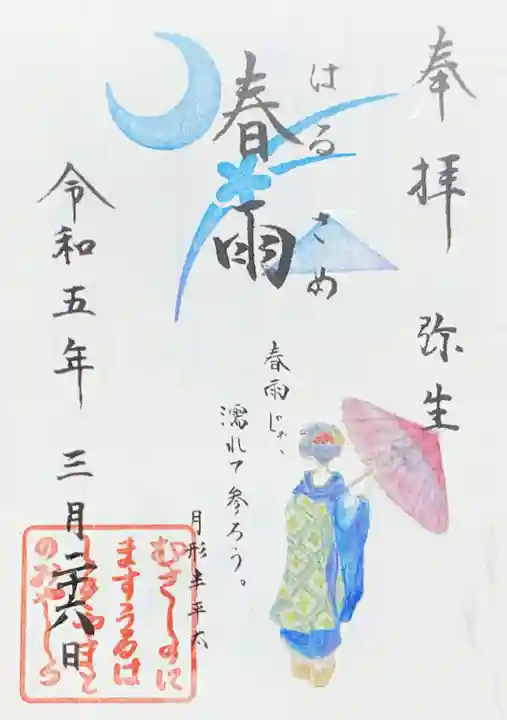 奉拝 弥生
はるさめ
春雨
春雨じゃ、
濡れて参ろう。
月形半平太
令和五年 三月二十六日
むさしのに
ますうるは
のみやしろ